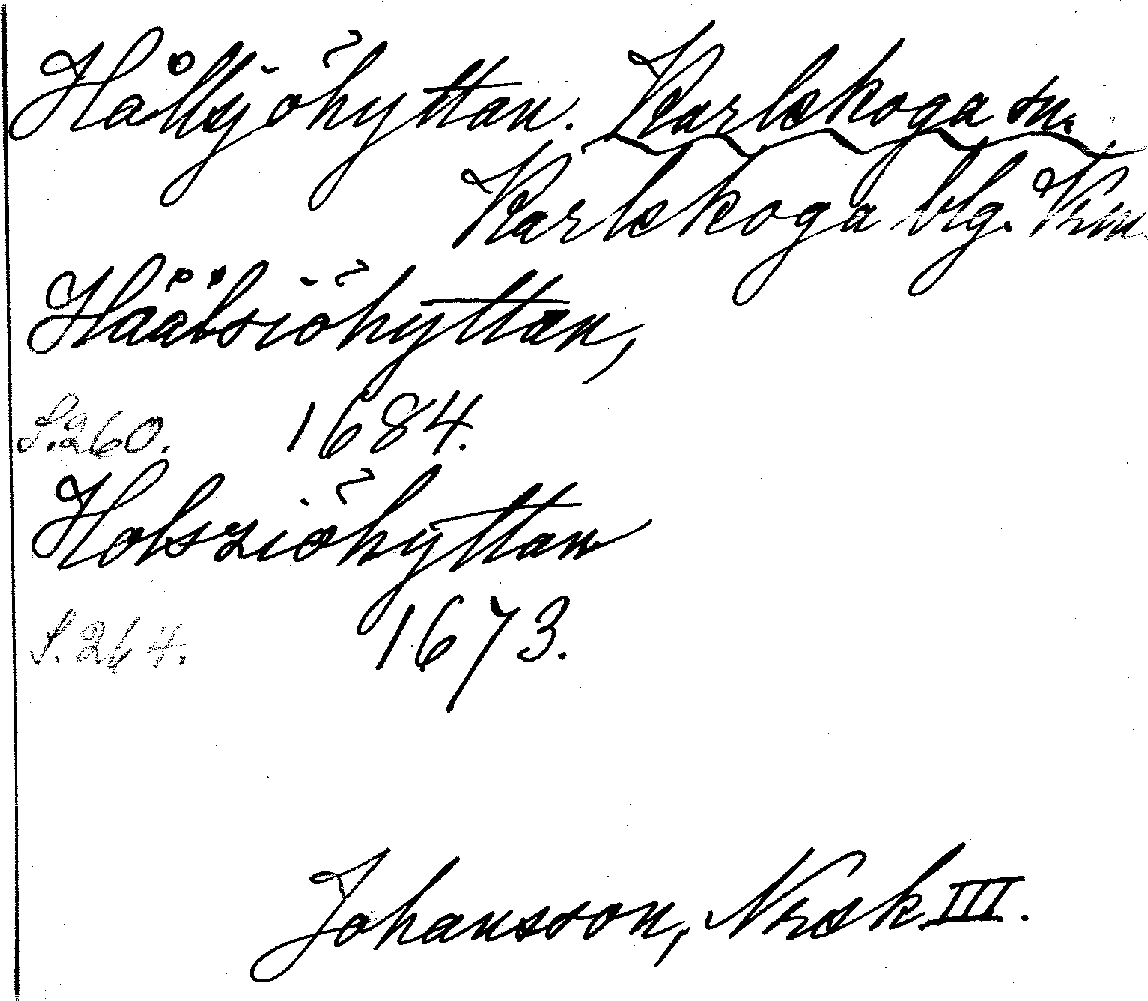 Hållsjöhyttan. Karlskoga sn.
Karlskoga blg. Vrm.
Håålsiöhyttan,
S.260. 1684.
Holssziöhyttan
S.264. 1673.
Johansson, Nrsk III.